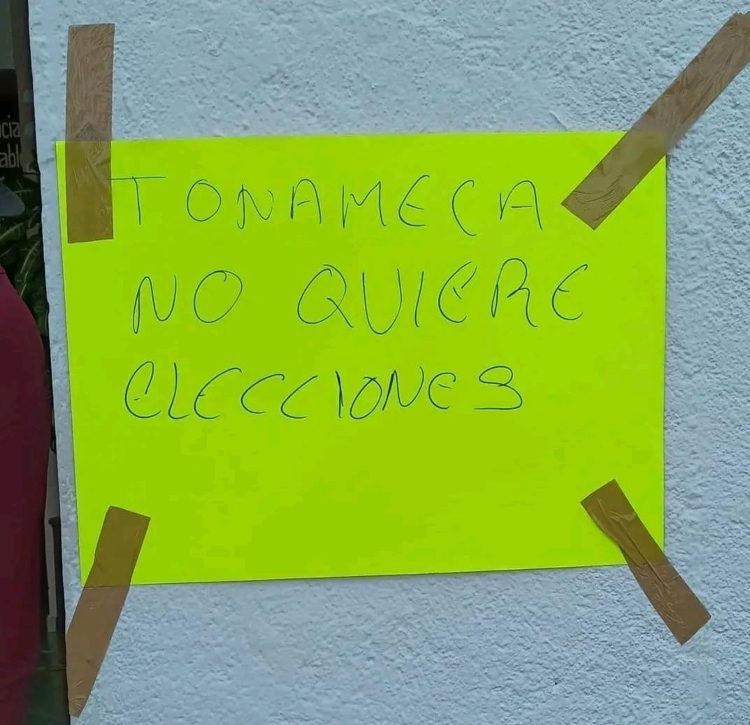 TONAMECA
NO QUIERE
ELECCIONES